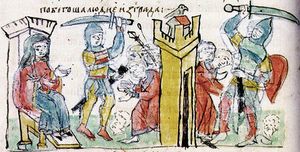 побѣгоша людие изграда: